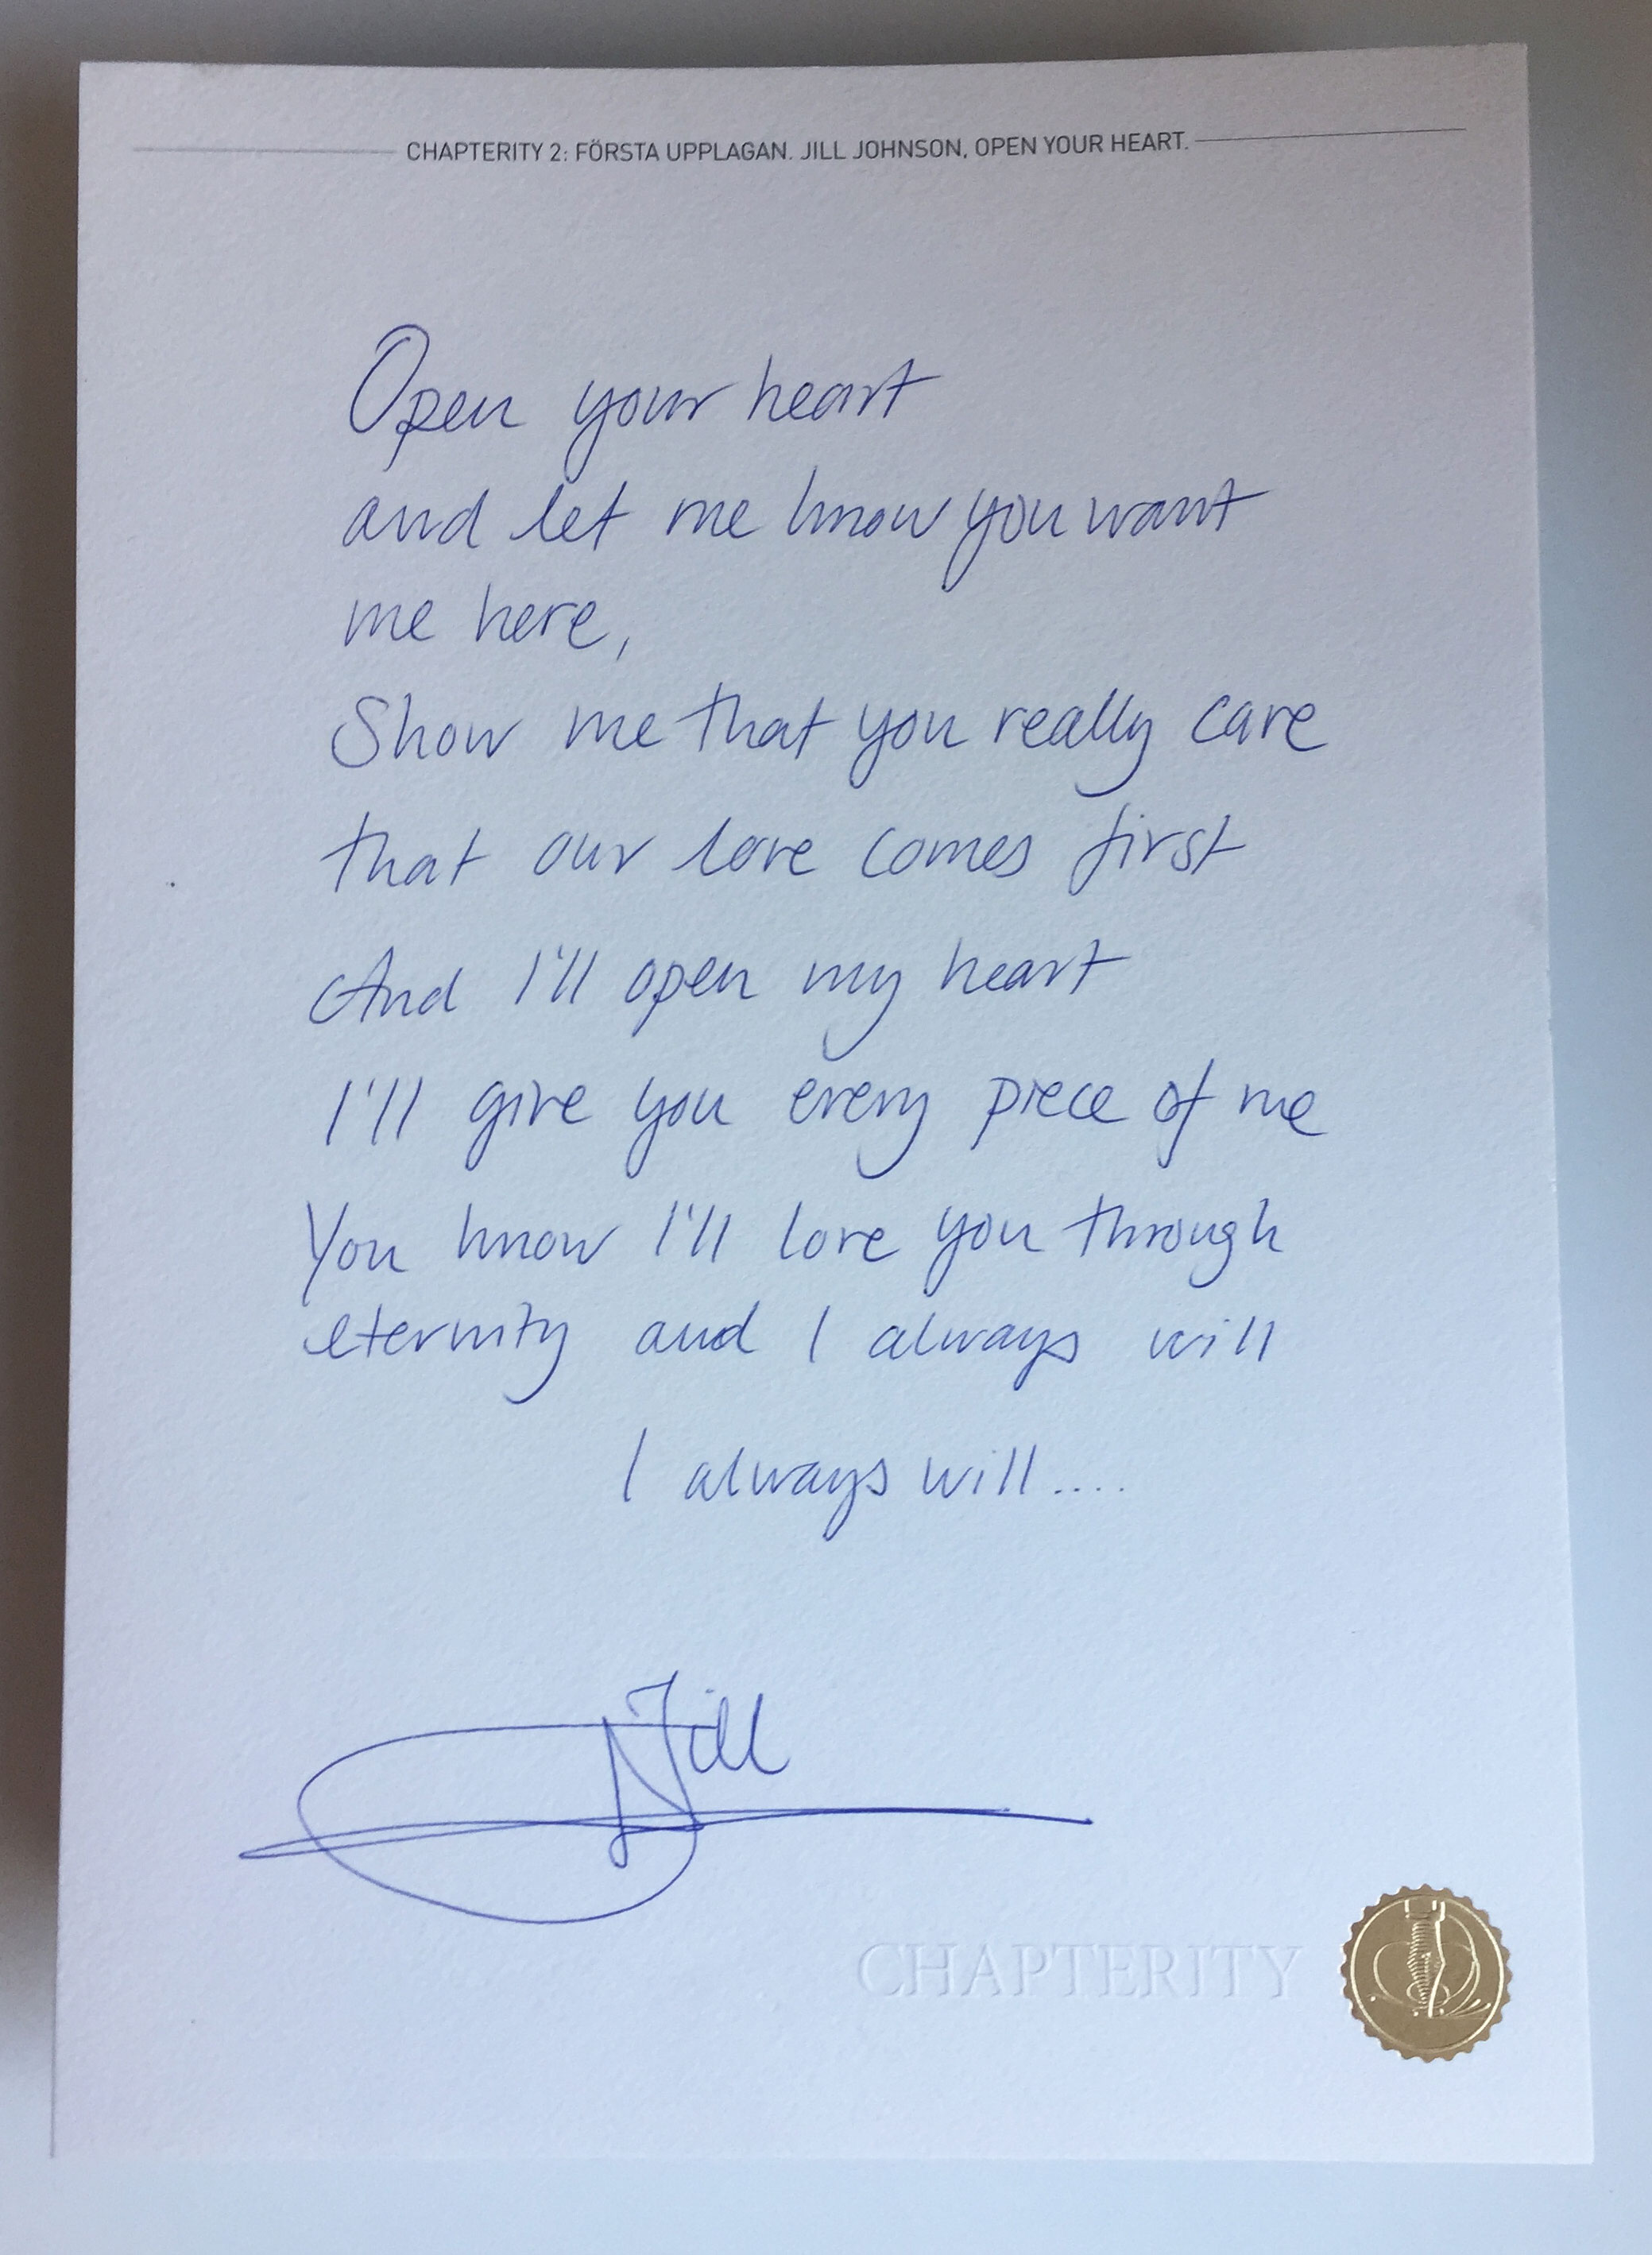 CHAPTERITY 2: FÖRSTA UPPLAGAN. JILL JOHNSON, OPEN YOUR HEART.
Open your heart
and let me know you want
me here,
Show me that you really care
that our love comes first
And I'll open my heart
I'll give you every piece of me
You know I'll love you through
eternity and I always will
I always will....
Jill
CHAPTERITY